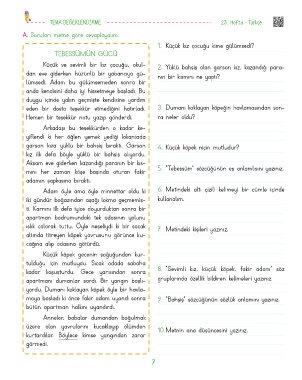 TEMA DEĞERLENDİRME
23. Hafta - Türkçe
A. Soruları metne göre cevaplayalım.
TEBESSÜMÜN GÜCÜ
Küçük ve sevimli bir kız çocuğu, okul-
dan eve giderken hüzünlü bir yabancıya gü-
lümsedi. Adam bu gülümsemeden sonra bir
anda kendisini daha iyi hissetmeye başladı. Bu
duygu içinde yakın geçmişte kendisine yardım
eden bir dosta teşekkür etmediğini hatırladı.
Hemen bir teşekkür notu yazıp gönderdi.
Arkadaşı bu teşekkürden o kadar ke-
yiflendi ki her öğlen yemek yediği lokantada
garson kıza yüklü bir bahşiş bıraktı. Garson
kız ilk defa böyle yüklü bir bahşiş alıyordu.
Akşam eve giderken kazandığı paranın bir kıs-
mını her zaman köşe başında oturan fakir
adamın şapkasına bıraktı.
Adam öyle ama öyle minnettar oldu ki
iki gündür boğazından aşağı lokma geçmemiş-
ti. Karnını ilk defa iyice doyurduktan sonra bir
apartman bodrumundaki tek odasının yolunu
ıslık çalarak tuttu. Öyle neşeliydi ki bir saçak
altında titreyen köpek yavrusunu görünce ku-
cağına alıp odasına götürdü.
Küçük köpek gecenin soğuğundan kur-
tulduğu için mutluydu. Sıcak odada sabaha
kadar koşuşturdu. Gece yarısından sonra
apartmanı dumanlar sardı. Bir yangın başlı-
yordu. Dumanı koklayan köpek öyle bir havla-
maya başladı ki önce fakir adam uyandı sonra
bütün apartman halkını uyandırdı.
Anneler, babalar dumandan boğulmak
üzere olan yavrularını kucaklayıp ölümden
kurtardılar. Böylece kimse yangından zarar
görmedi.
1. Küçük kız çocuğu kime gülümsedi?
2. Yüklü bahşiş alan garson kız, kazandığı para-
nın bir kısmını ne yaptı?
3. Dumanı koklayan köpeğin havlamasından son-
ra neler oldu?
4. Küçük köpek niçin mutludur?
5. "Tebessüm" sözcüğünün eş anlamlısını yazınız.
6. Metindeki altı çizili kelimeyi bir cümle içinde
kullanalım.
7. Metindeki kişileri yazınız.
8. "Sevimli kız, küçük köpek, fakir adam" söz
gruplarında özellik bildiren kelimeleri yazınız
9. "Bahşiş" sözcüğünün sözlük anlamını yazınız.
10. Metnin ana düşüncesini yazınız.
7